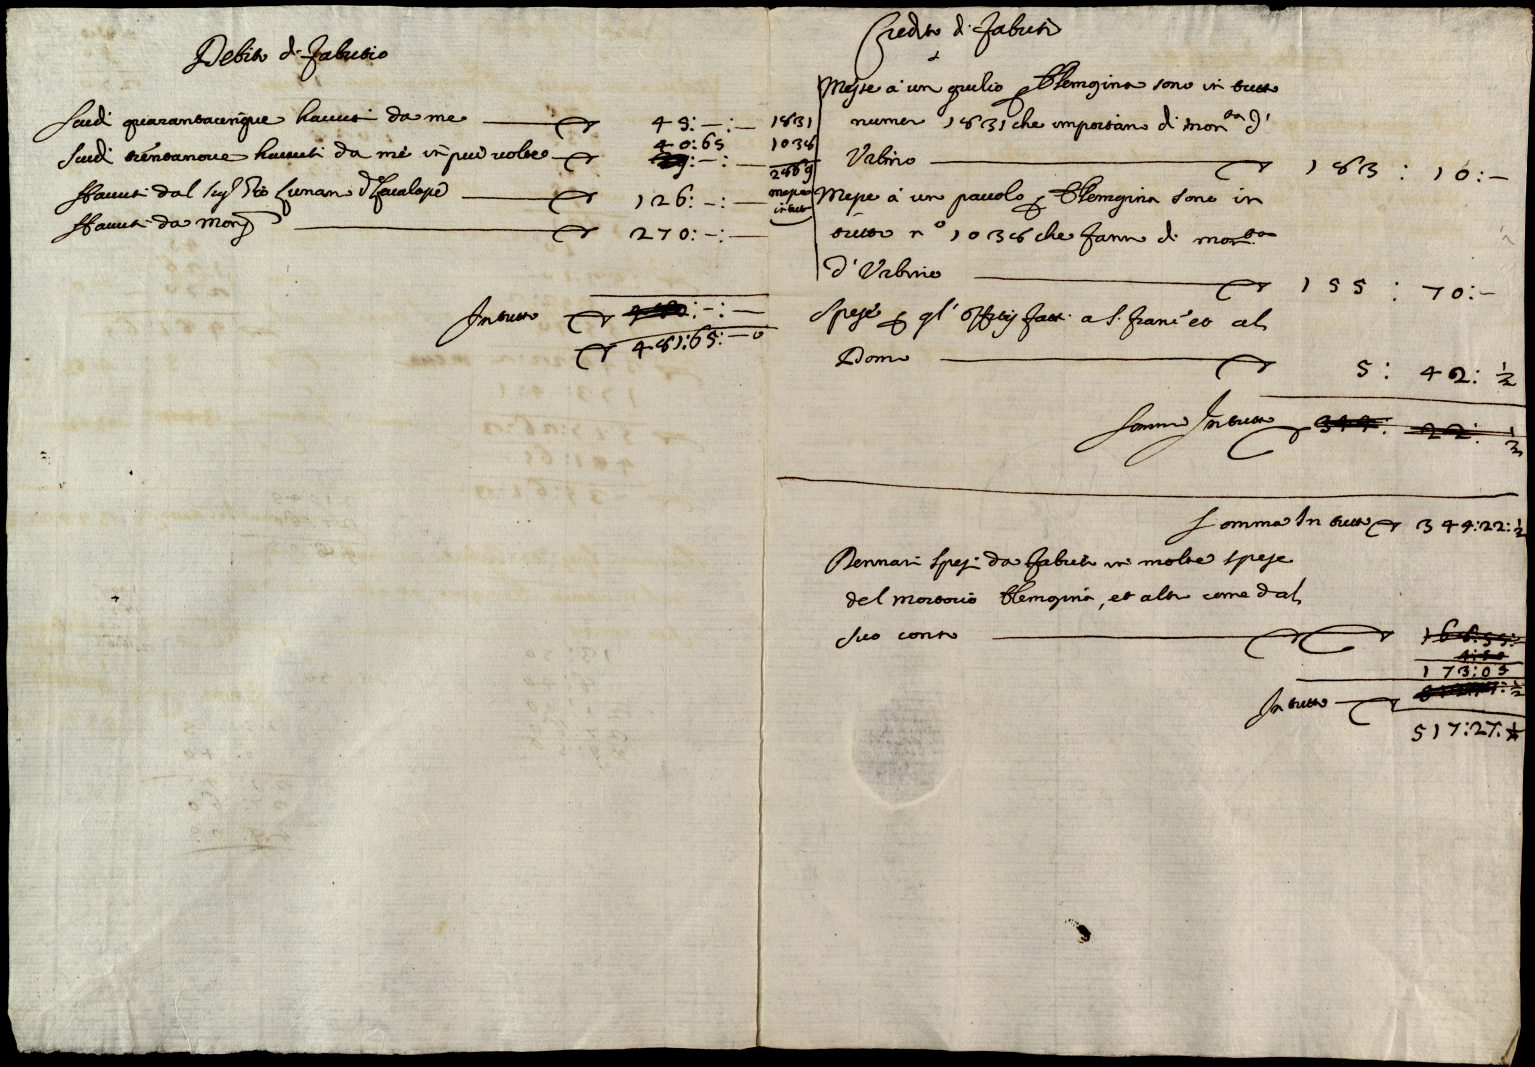 Debito di Fabritio
Scudi quarantacinque havuti da me 45: – : –
40:65
Scudi trentanove havuti da me in più volte 39: – : –
Havuti dal Sigr 126: – : –
Havuti da Mong 270: – : –
In tutto : – : –
481:65: – 0
1831
1038
2869
messe
in tutto
Credito di Fabriti
Messe à un giulio p elemosina sono in tutto
numero 1831 che importano di monta d'
Urbino 183 : 10: –
Messe à un pauolo p elemosina sono in
tutto no 1038 che fanno di monta
d'Urbino 155 : 70: –
Spese p gl' offitij fatti a S. Franco et al
Domo 5 : 42: ½
Somma In tutto 344: 22: ½
Somma In tutto 344:22: ½
Dennari spesi da Fabriti in molte spese
del mortorio elemosina, et altri come dal
suo conto 168:55:
4:50
173:05
In tutto
517:27: